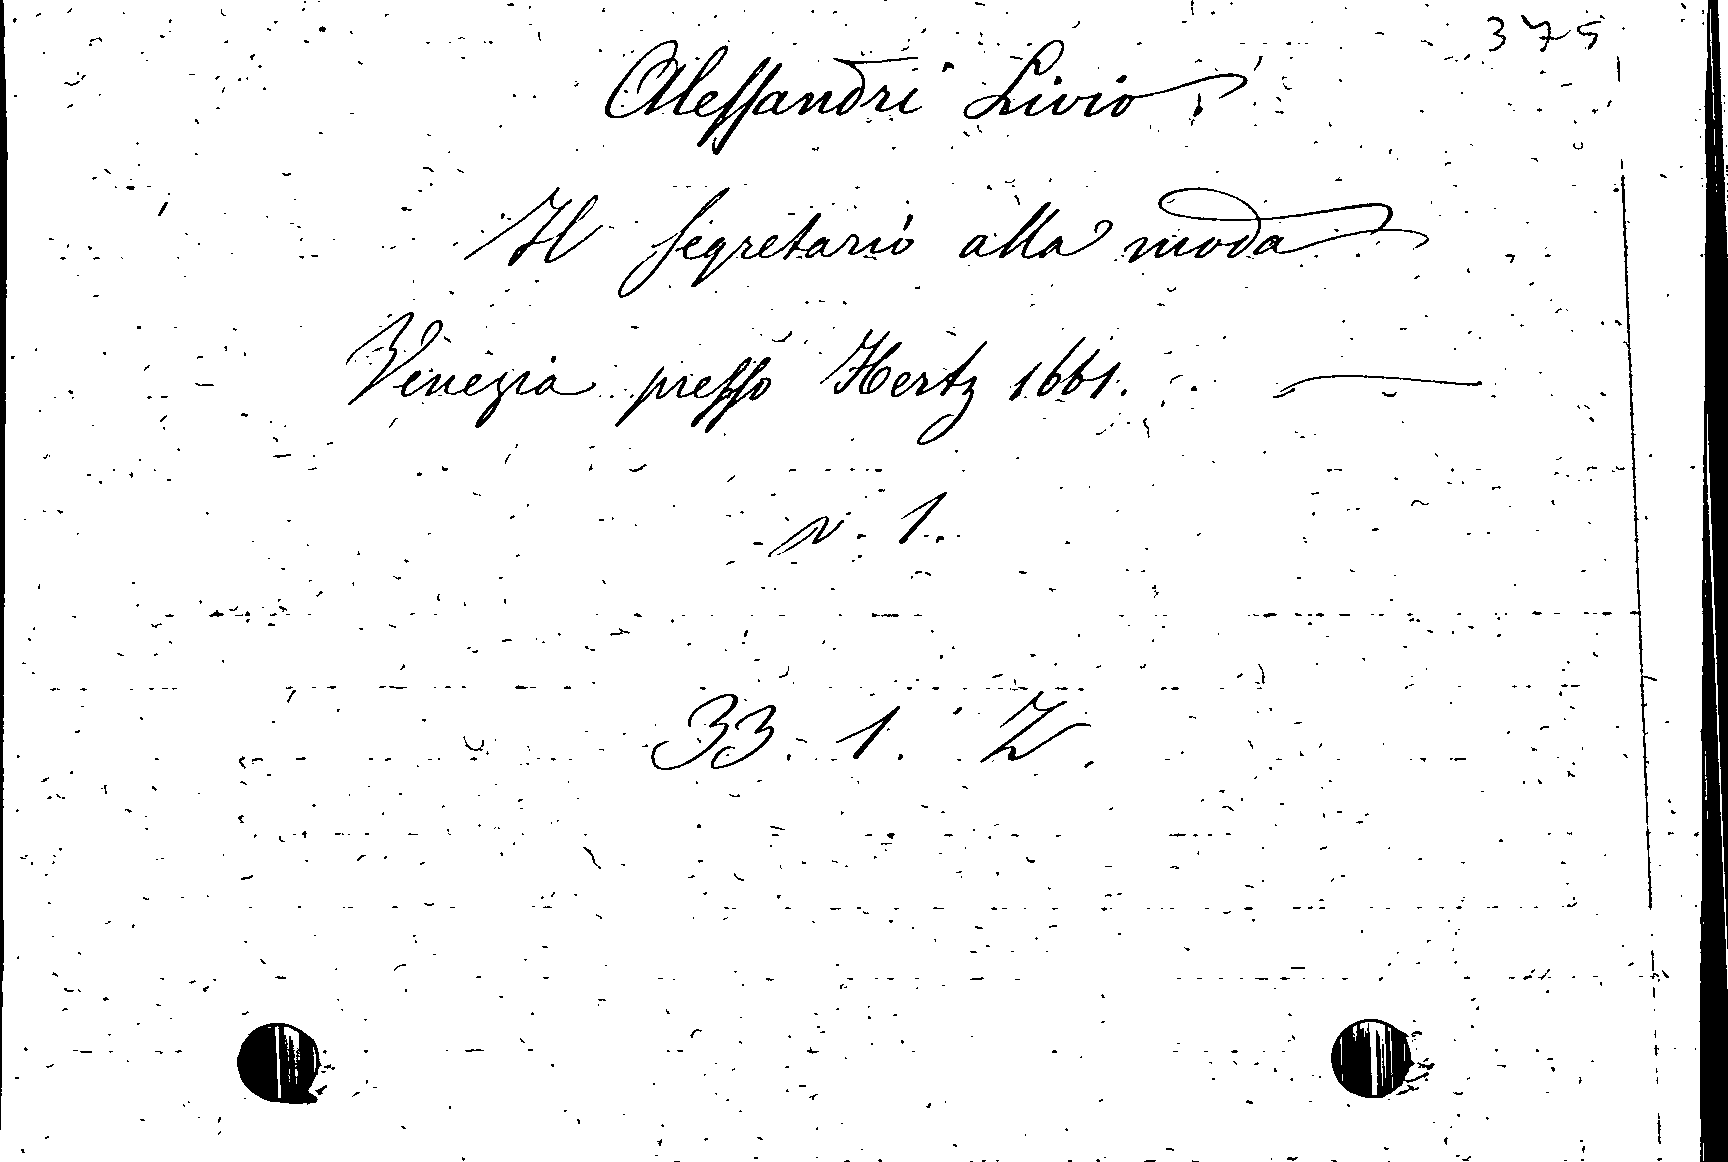 375
Alessandri Livio
Il segretario alla moda
Venezia presso Hertz 1661.
v. 1.
33. 1. Z.